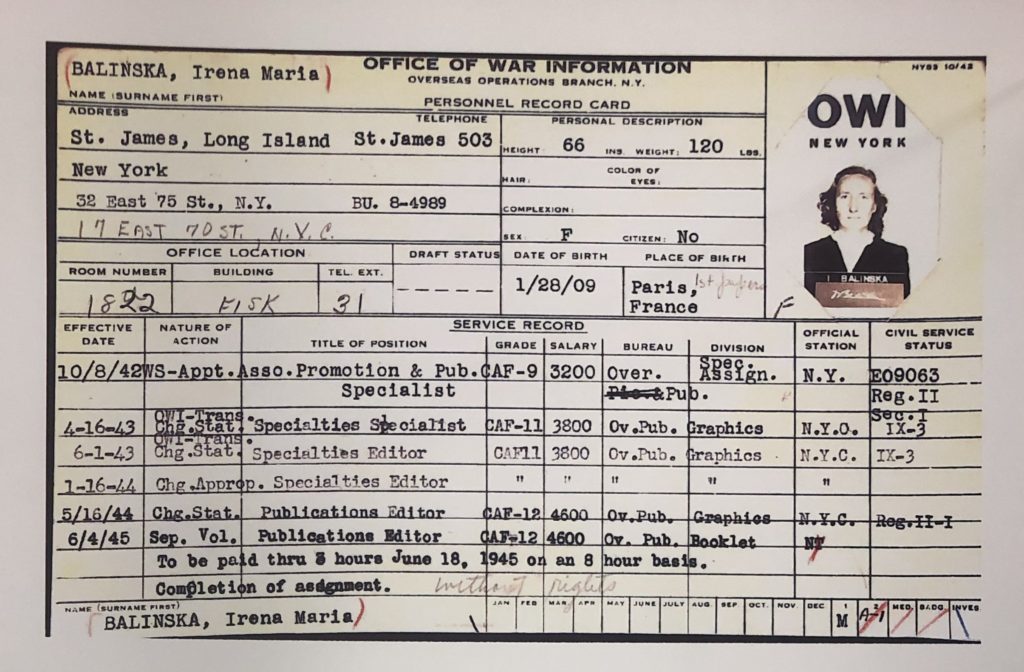 BALINSKA, Irena Maria
OFFICE OF WAR INFORMATION
OVERSEAS OPERATIONS BRANCH. N.Y.
NYSS 10/42
NAME (SURNAME FIRST)
PERSONNEL RECORD CARD
ADDRESS
TELEPHONE
St. James, Long Island St.James 503
New York
32 East 75 St., N.Y. BU. 8-4989
17 EAST 70 ST, N.Y.C.
PERSONAL DESCRIPTION
HEIGHT: 66 INS. WEIGHT: 120 LBS.
HAIR: COLOR OF EYES:
COMPLEXION:
SEX F CITIZEN: No
OWI
NEW YORK
I BALINSKA
OFFICE LOCATION
DRAFT STATUS
DATE OF BIRTH
PLACE OF BIRTH
ROOM NUMBER BUILDING TEL. EXT.
1822 FISK 31
------
1/28/09
Paris, 1st papers
France
F
SERVICE RECORD
EFFECTIVE DATE
NATURE OF ACTION
TITLE OF POSITION
GRADE
SALARY
BUREAU
DIVISION
OFFICIAL STATION
CIVIL SERVICE STATUS
10/8/42 WS-Appt. Asso.Promotion & Pub. CAF-9 3200 Over. Spec. Assign. N.Y. E09063
Specialist Pic.&Pub. Reg.II
Sec.I
OWI-Trans.
4-16-43 Chg.Stat. Specialties Specialist CAF-11 3800 Ov.Pub. Graphics N.Y.O. IX-3
OWI-Trans.
6-1-43 Chg.Stat. Specialties Editor CAF11 3800 Ov.Pub. Graphics N.Y.C. IX-3
1-16-44 Chg.Approp. Specialties Editor " " " " "
5/16/44 Chg.Stat. Publications Editor CAF-12 4600 Ov.Pub. Graphics N.Y.C. Reg.II-I
6/4/45 Sep. Vol. Publications Editor CAF-12 4600 Ov. Pub. Booklet NY
To be paid thru 8 hours June 18, 1945 on an 8 hour basis.
Completion of assignment. without rights
NAME (SURNAME FIRST)
BALINSKA, Irena Maria
JAN FEB MAR. APR MAY JUNE JULY AUG. SEP OCT. NOV DEC 1 M 2 A-1 MED. BADG. INVES